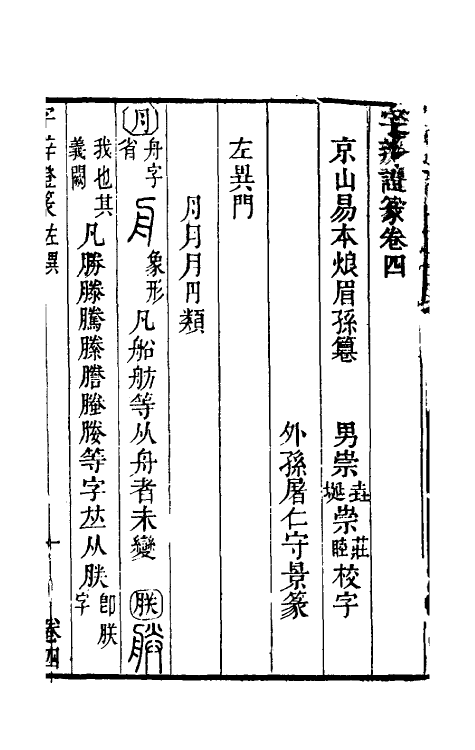 字辨證篆卷四
京山易本烺眉孫篹　男崇垚崇莊校字
外孫屠仁守景篆
左異門
月月月円類
月舟字省　象形凡船舫等从舟者未變　朕
我也其義闕凡勝滕騰縢謄塍媵等字𠀤从朕卽朕字
字辨證篆左異　一　卷四